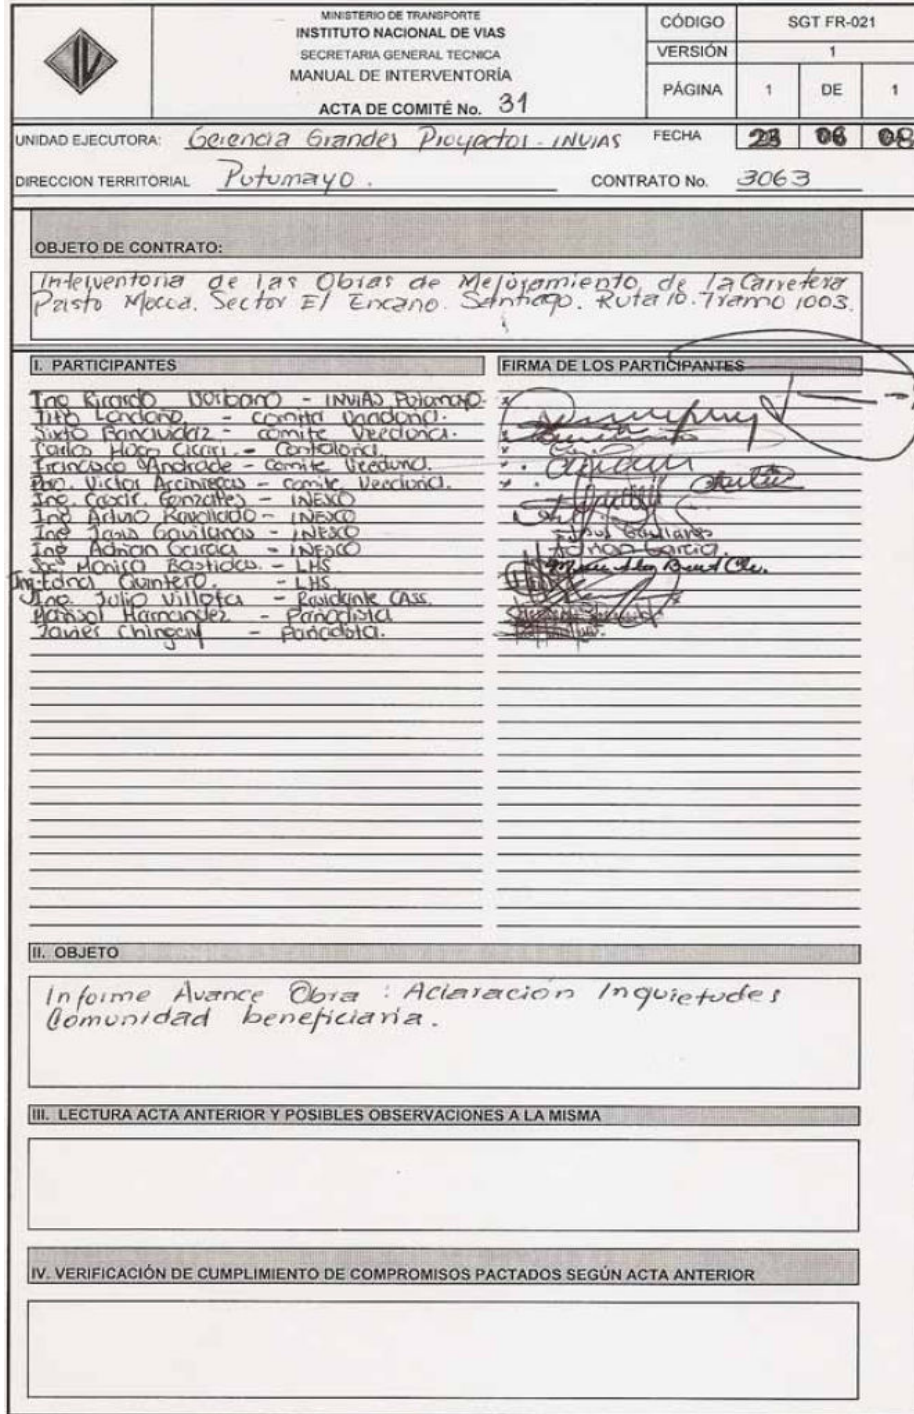 MINISTERIO DE TRANSPORTE
INSTITUTO NACIONAL DE VIAS
SECRETARIA GENERAL TECNICA
MANUAL DE INTERVENTORÍA
ACTA DE COMITÉ No. 31
CÓDIGO SGT FR-021
VERSIÓN 1
PÁGINA 1 DE 1
UNIDAD EJECUTORA: Gerencia Grandes Proyectos - INVIAS FECHA 23 06 08
DIRECCION TERRITORIAL Putumayo. CONTRATO No. 3063
OBJETO DE CONTRATO:
Interventoria de las Obras de Mejoramiento de la Carretera
Pasto Mocoa. Sector El Encano. Santiago. Ruta 10. Tramo 1003.
I. PARTICIPANTES FIRMA DE LOS PARTICIPANTES
Ing Ricardo Burbano - INVIAS Putumayo.
Tito Londoño - Comite Veeduria.
Sixto - Comite Veeduria.
Carlos Hugo - Contraloria.
Francisco Andrade - Comite Veeduria.
Victor Arciniegas - Comite Veeduria.
Ing. Gonzales - INESCO
Ing Arturo - INESCO
Ing Jesus Gavilanes - INESCO Jesus Gavilanes
Ing Adrian Garcia - INESCO Adrian Garcia.
Monica Bastidas. - LHS
Ing. Edna Quintero. - LHS
Ing. Julio Villota - Residente CASS.
Marisol Hernandez - Periodista
Javier Chingay - Periodista.
II. OBJETO
Informe Avance Obra : Aclaración Inquietudes
Comunidad beneficiaria.
III. LECTURA ACTA ANTERIOR Y POSIBLES OBSERVACIONES A LA MISMA
IV. VERIFICACIÓN DE CUMPLIMIENTO DE COMPROMISOS PACTADOS SEGÚN ACTA ANTERIOR